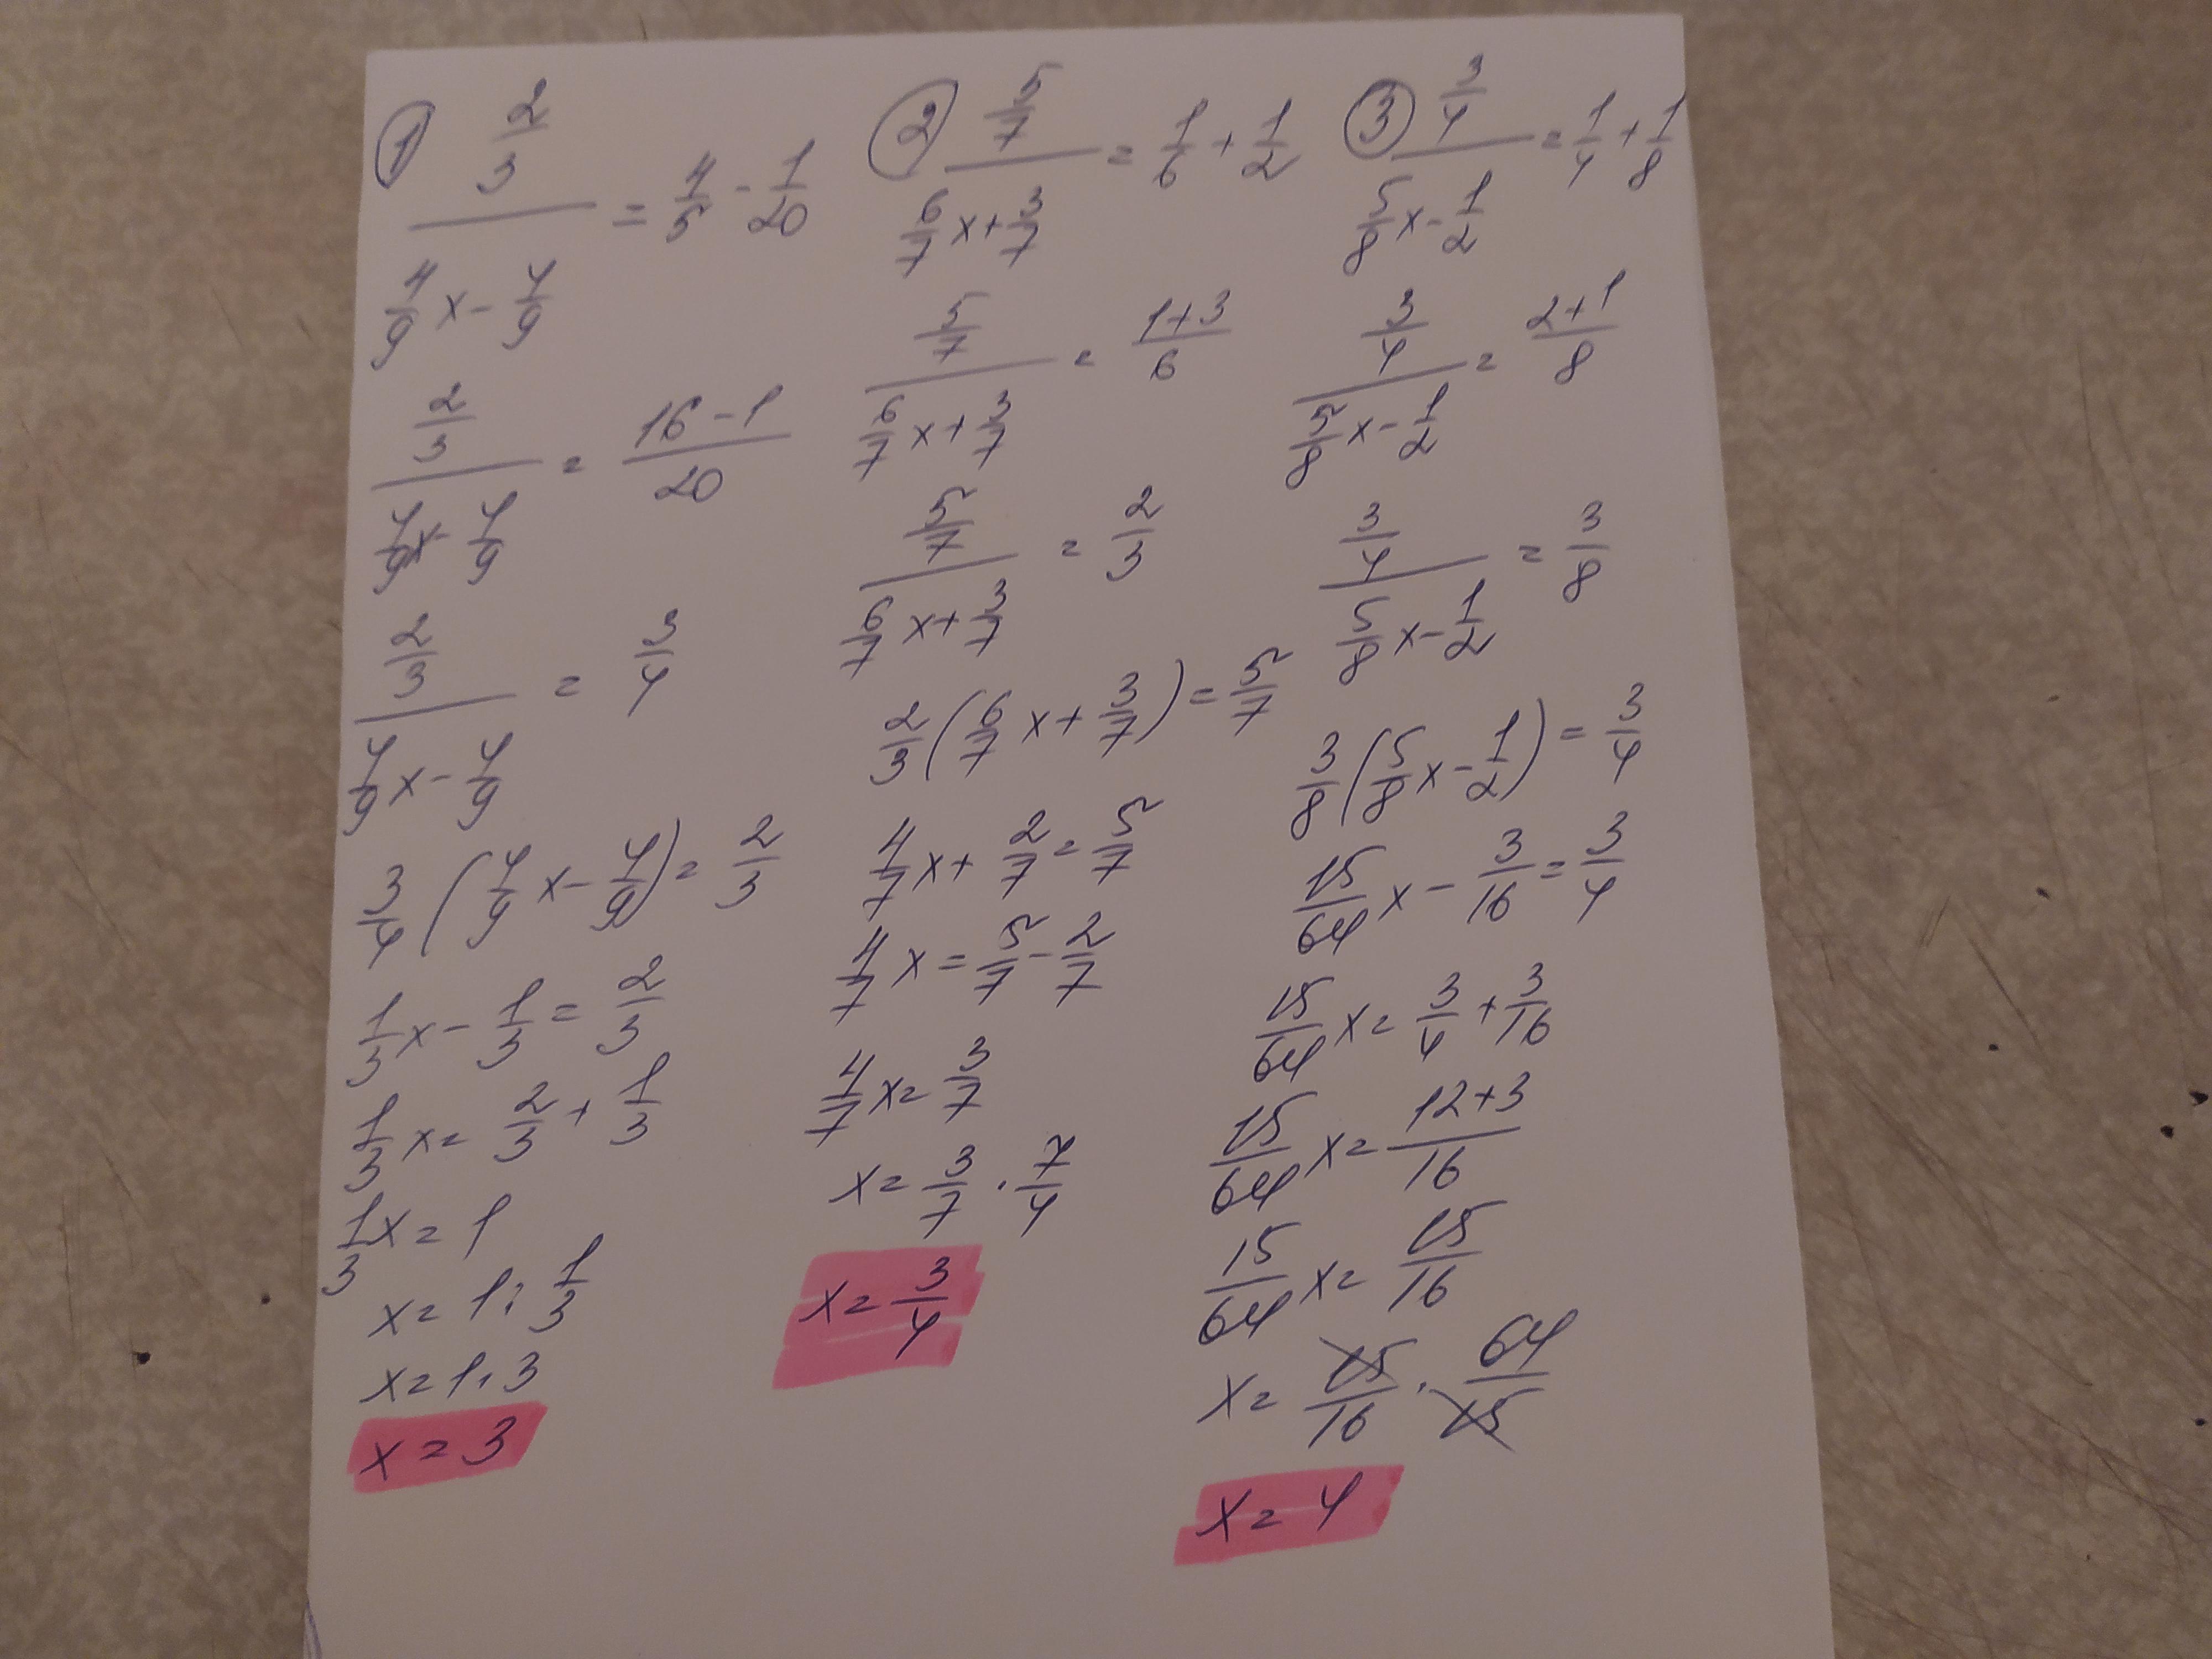 ① (2/3)/(4/9 x - 4/9) = 4/5 - 1/20
(2/3)/(4/9 x - 4/9) = (16 - 1)/20
(2/3)/(4/9 x - 4/9) = 3/4
3/4 (4/9 x - 4/9) = 2/3
1/3 x - 1/3 = 2/3
1/3 x = 2/3 + 1/3
1/3 x = 1
x = 1 : 1/3
x = 1 · 3
x = 3
② (5/7)/(6/7 x + 3/7) = 1/6 + 1/2
(5/7)/(6/7 x + 3/7) = (1 + 3)/6
(5/7)/(6/7 x + 3/7) = 2/3
2/3 (6/7 x + 3/7) = 5/7
4/7 x + 2/7 = 5/7
4/7 x = 5/7 - 2/7
4/7 x = 3/7
x = 3/7 · 7/4
x = 3/4
③ (3/4)/(5/8 x - 1/2) = 1/4 + 1/8
(3/4)/(5/8 x - 1/2) = (2 + 1)/8
(3/4)/(5/8 x - 1/2) = 3/8
3/8 (5/8 x - 1/2) = 3/4
15/64 x - 3/16 = 3/4
15/64 x = 3/4 + 3/16
15/64 x = (12 + 3)/16
15/64 x = 15/16
x = 15/16 · 64/15
x = 4